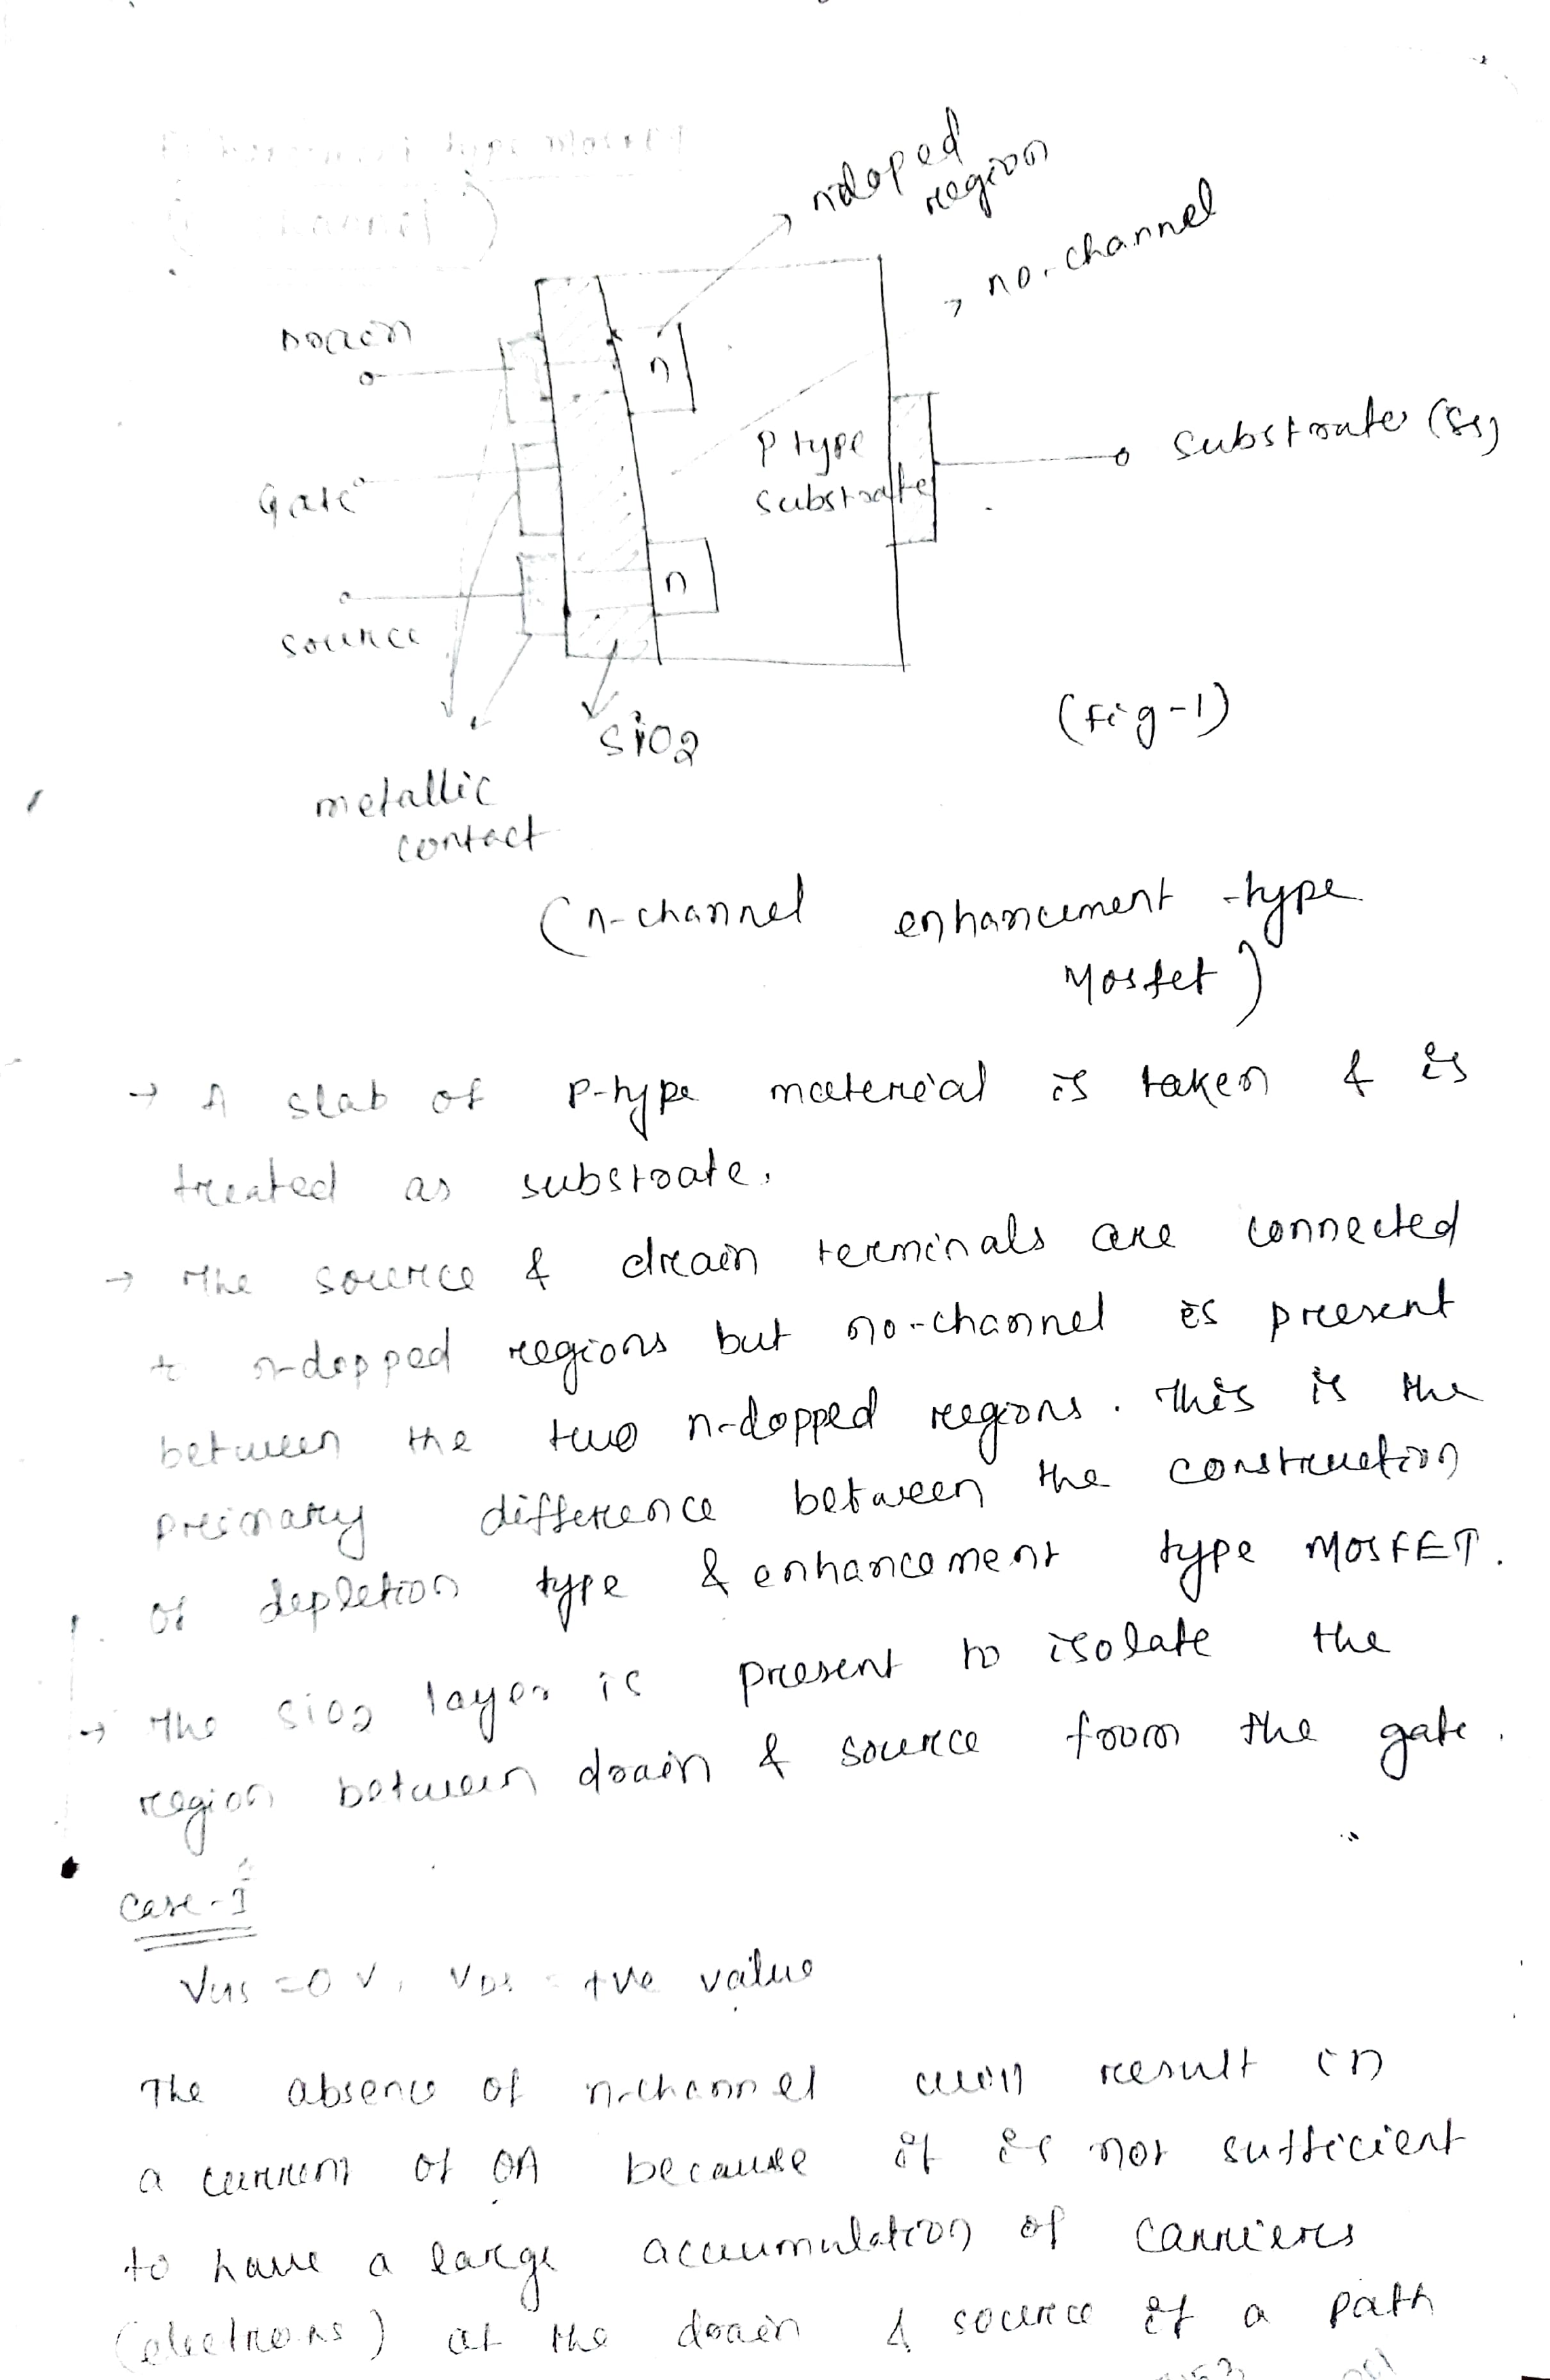 ndoped
region
no-channel
Drain
n
P type
substrate
Substrate (SS)
Gate
n
Source
SiO2
(fig-1)
metallic
contact
(n-channel enhancement-type
Mosfet)
→ A slab of P-type material is taken & is
treated as substrate.
→ The source & drain terminals are connected
to n-dopped regions but no-channel is present
between the two n-dopped regions. This is the
primary difference between the construction
of depletion type & enhancement type MOSFET.
→ The SiO2 layer is present to isolate the
region between drain & source from the gate.
Case-I
VGS = 0 V, VDS = +ve value
The absence of n-channel will result in
a current of 0A because it is not sufficient
to have a large accumulation of carriers
(electrons) at the drain & source if a path